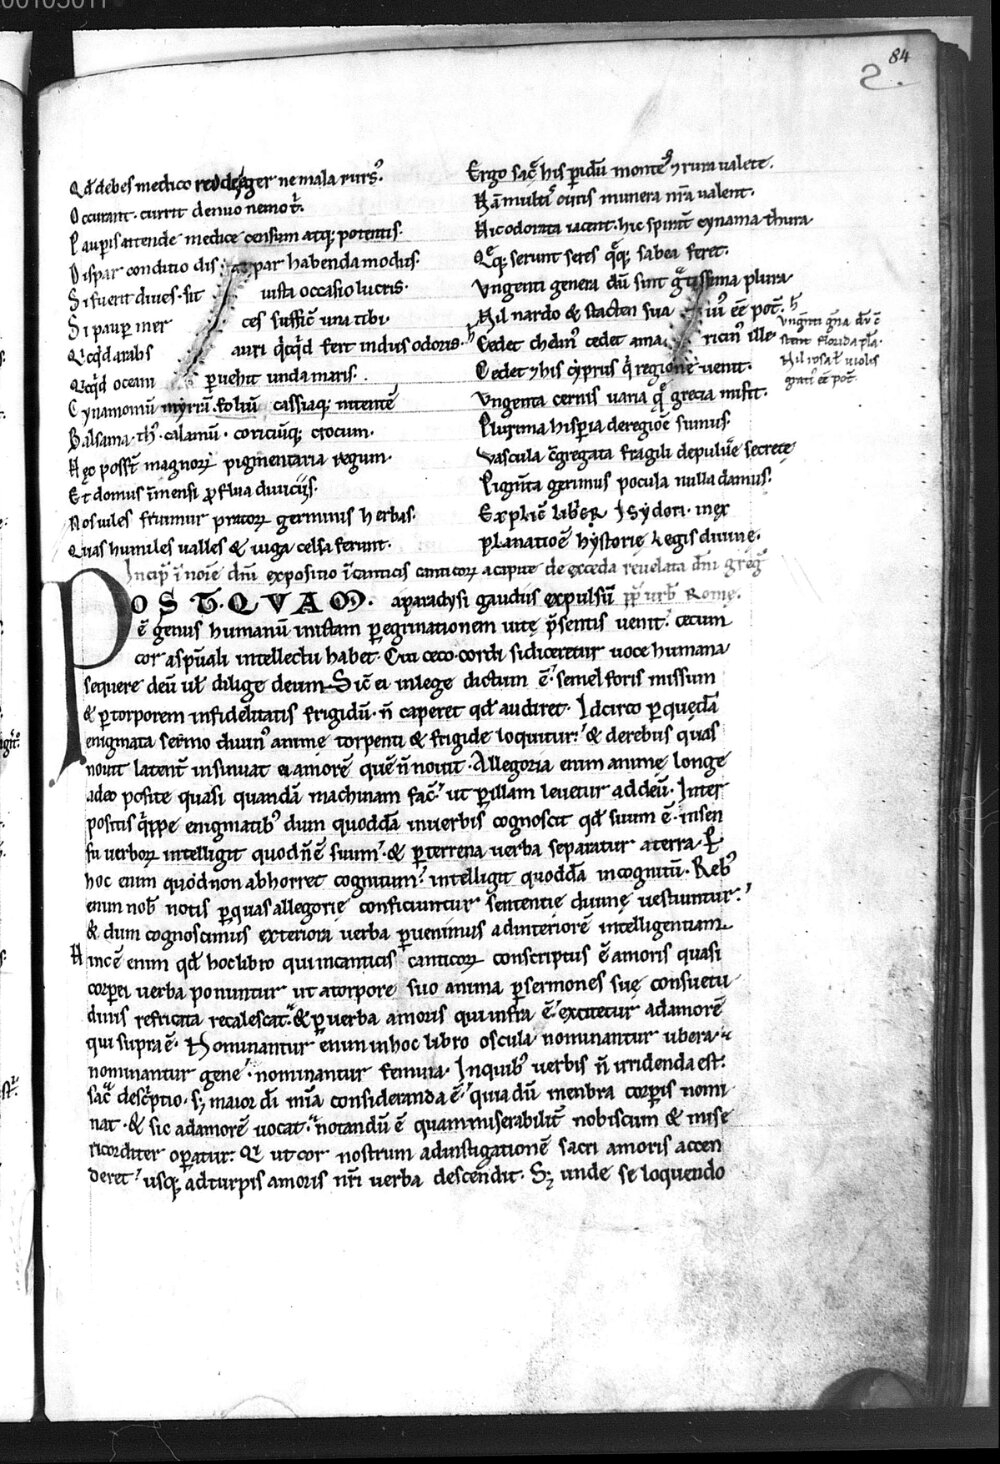 84
2.
Qđ debes medico redde eger ne mala rursꝰ.
Occurant. currit denuo nemo t̄.
Pauꝑis attende medice censum atq; potentis.
Dispar conditio dis: par habenda modus.
Si fuerit diues. sit iusta occasio lucris.
Si pauꝑ mer ces suffic̄ una tibi.
Qicqd arabs auri q̇cq̇d fert indus odoris.
Qicqd oceani ꝑuehit unda maris.
Cynamomū myrrū. foliū cassiaq; nitentē
Balsama. th'. calamū. coriciūq; crocum.
Hęc possr̄t magnoꝝ pigmentaria regum.
Et domus īmensi ꝓflua diuiciis.
Nos uiles fruimur pratoꝝ germinis herbas.
Quas humiles ualles & iuga celsa ferunt.
Ergo sac̄ his ꝑidū montesꝰ ⁊ rura ualete.
Nā multiꝰ ouris munera nr̄a ualent.
Hic odorata iacent. hic spirāt cynama thura.
Qęq; serunt seres q̄q; sabea feret.
Vngenti genera cū sint gͣtissima plura.
Nil nardo & stacten sua iuꝰ eē pot̄.
Cedet chdinꝰ cedet ama ricinꝰ ille
Cedet ⁊ his cyprus q̇ regione uenit.
Vngenta cernis uaria q̄ grecia misit.
Plurima hisꝑia de regiōe sumus.
Vascula c̄gregata fragili depuluē secretę
Pigm̄ta gerimus pocula nulla damus.
Explic̄ liber Isydori. in ex
planatiōe hystorię legis diuinę.
Vngn̄ti gn̄a cū ē
stent florida pla.
Nil rosa ł uiolis
gratiꝰ eē pot̄.
Incip̄ ī noīe dn̄i expositio ī canticis canticoꝝ a capite de exceda reuelata dn̄i gregͦ
POSTQVAM. a paradysi gaudiis expulsū pp̄ urb̄ Romę.
ē genus humanū in istam ꝑegrinationem uitę p̄sentis uenit. cecum
cor a spūali intellectu habet. Cui ceco cordi si diceretur uoce humana
sequere deū uł dilige deum. Sic̄ ei in lege dictum ē. semel foris missum
& ꝑ torporem infidelitatis frigidū. n̄ caperet qđ audiret. Idcirco ꝑ quędā
enigmata sermo diuinꝰ anime torpenti & frigide loquitur. & de rebus quas
nouit latent̄ insinuat ei amorē quē n̄ nouit. Allegoria enim anime longe
a deo posite quasi quandā machinam fac̄. ut ꝑ illam leuetur ad deū. Inter
positis q̇ppe enigmatibꝰ dum quoddā in uerbis cognoscit qđ suum ē. in sen
su uerboꝝ intelligit quod n̄ ē suum. & ꝑ terrena uerba separatur a terra. Ꝑ
hoc enim quod non abhorret cognitum. intelligit quoddā incognitū. Rebꝰ
enim nob̄ notis ꝑ quas allegorię conficiuntur sententię diuinę uestiuntur.
& dum cognoscimus exteriora uerba ꝑuenimus ad interiorē intelligentiam.
Hinc ē enim qđ hoc libro qui in canticis canticoꝝ conscriptus ē amoris quasi
corꝑei uerba ponuntur ut a torpore suo anima ꝑ sermones suę consuetu
dinis refricata recalescat. & ꝑ uerba amoris qui infra ē. excitetur ad amorē
qui supra ē. Nominantur enim in hoc libro oscula. nominantur ubera.
nominantur gene. nominantur femura. In quibꝰ uerbis n̄ irridenda est.
sac̄ desc̄ptio. sꝫ maior dī mīa consideranda ē. quia dū menbra corꝑis nomi
nat. & sic ad amorē uocat. notandū ē quam miserabilit̄ nobiscum & mise
ricorditer oꝑatur. Qi ut cor nostrum ad instigationē sacri amoris accen
deret. usq; ad turpis amoris nr̄i uerba descendit. Sꝫ unde se loquendo